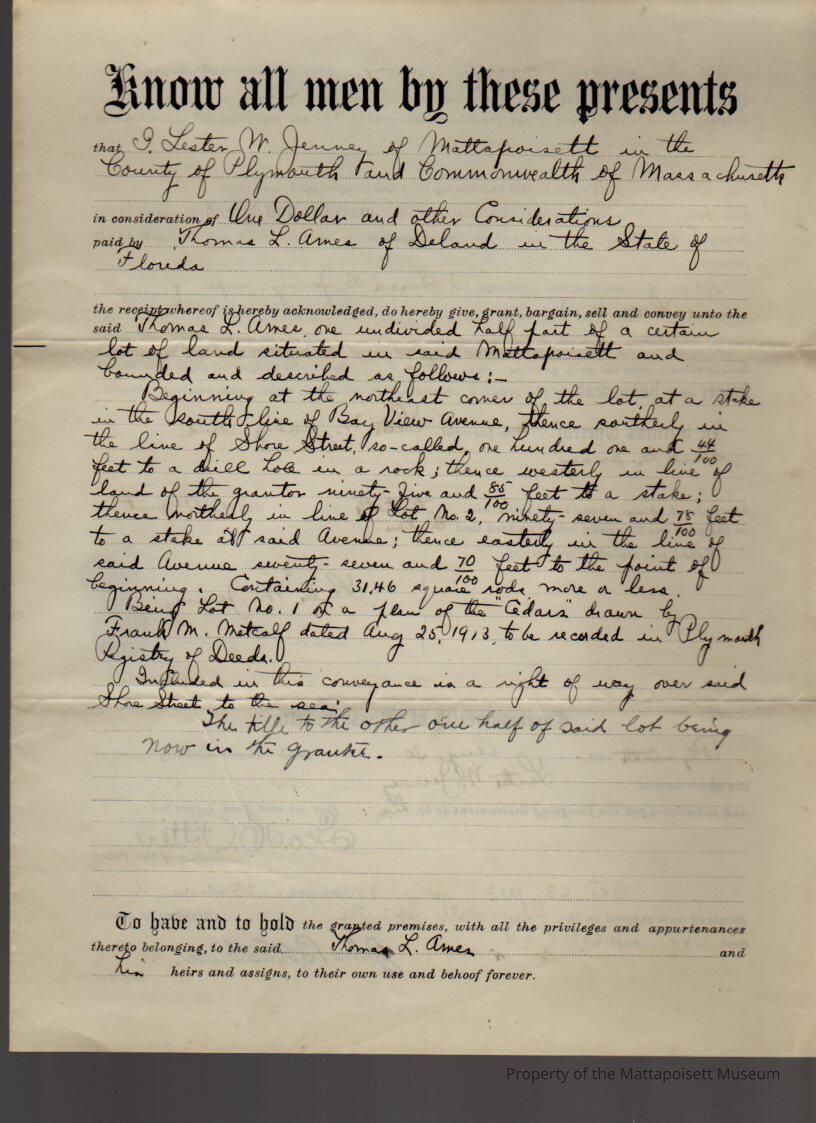 Know all men by these presents
that I, Lester W. Jenney of Mattapoisett in the
County of Plymouth and Commonwealth of Massachusetts
in consideration of One Dollar and other Considerations
paid by Thomas L. Ames of Deland in the State of
Florida
the receipt whereof is hereby acknowledged, do hereby give, grant, bargain, sell and convey unto the
said Thomas L. Ames, one undivided half part of a certain
lot of land situated in said Mattapoisett and
bounded and described as follows:-
Beginning at the northeast corner of the lot, at a stake
in the south line of Bay View Avenue, thence southerly in
the line of Shore Street, so-called, one hundred one and 44/100
feet to a drill hole in a rock; thence westerly in line of
land of the grantor ninety-five and 85/100 feet to a stake;
thence northerly in line of Lot No. 2, ninety-seven and 78/100 feet
to a stake at said Avenue; thence easterly in the line of
said Avenue seventy-seven and 70/100 feet to the point of
beginning. Containing 31.46 square rods, more or less.
Being Lot No. 1 on a plan of the "Cedars" drawn by
Frank M. Metcalf dated Aug 25, 1913, to be recorded in Plymouth
Registry of Deeds.
Included in this conveyance is a right of way over said
Shore Street to the sea;
The title to the other one half of said lot being
now in the grantee.
To have and to hold the granted premises, with all the privileges and appurtenances
thereto belonging, to the said Thomas L. Ames and
his heirs and assigns, to their own use and behoof forever.
Property of the Mattapoisett Museum